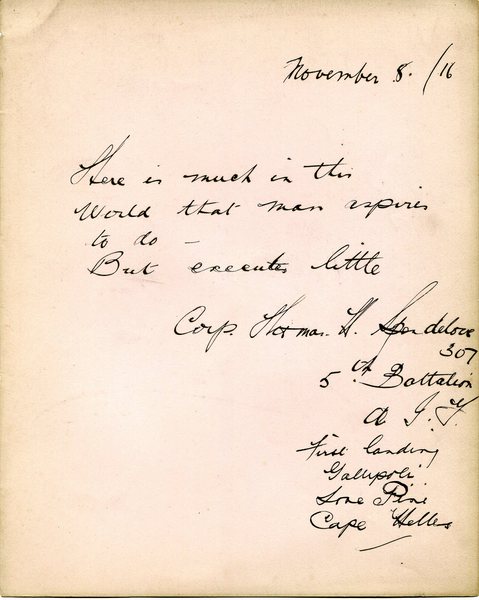 November 8. /16
Here is much in this
World that man aspires
to do –
But executes little
Corp. Thomas. H. Spendelove
307
5th Battalion
A I. F.
First landing
Gallipoli
Lone Pine
Cape Helles